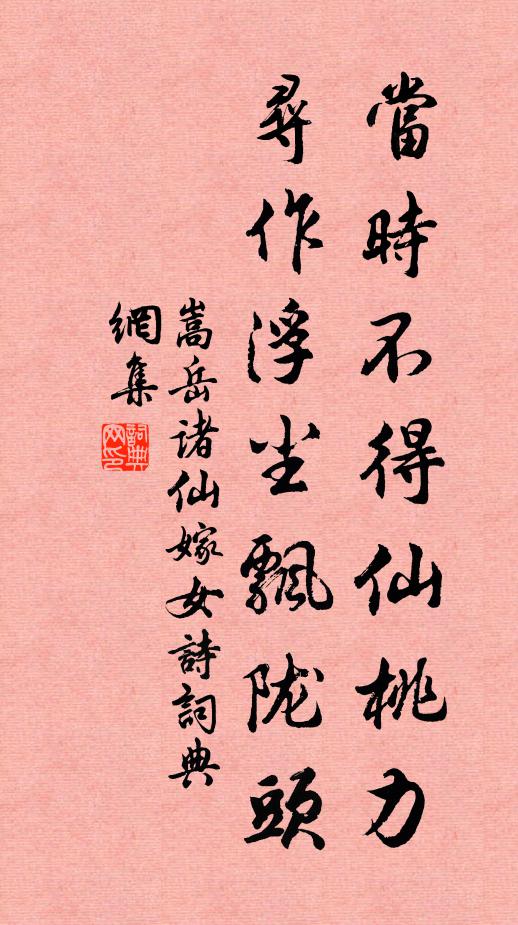 當時不得仙桃力
尋作浮尘飄陇頭
嵩岳诸仙嫁女詩詞典
網集
詞典
网印